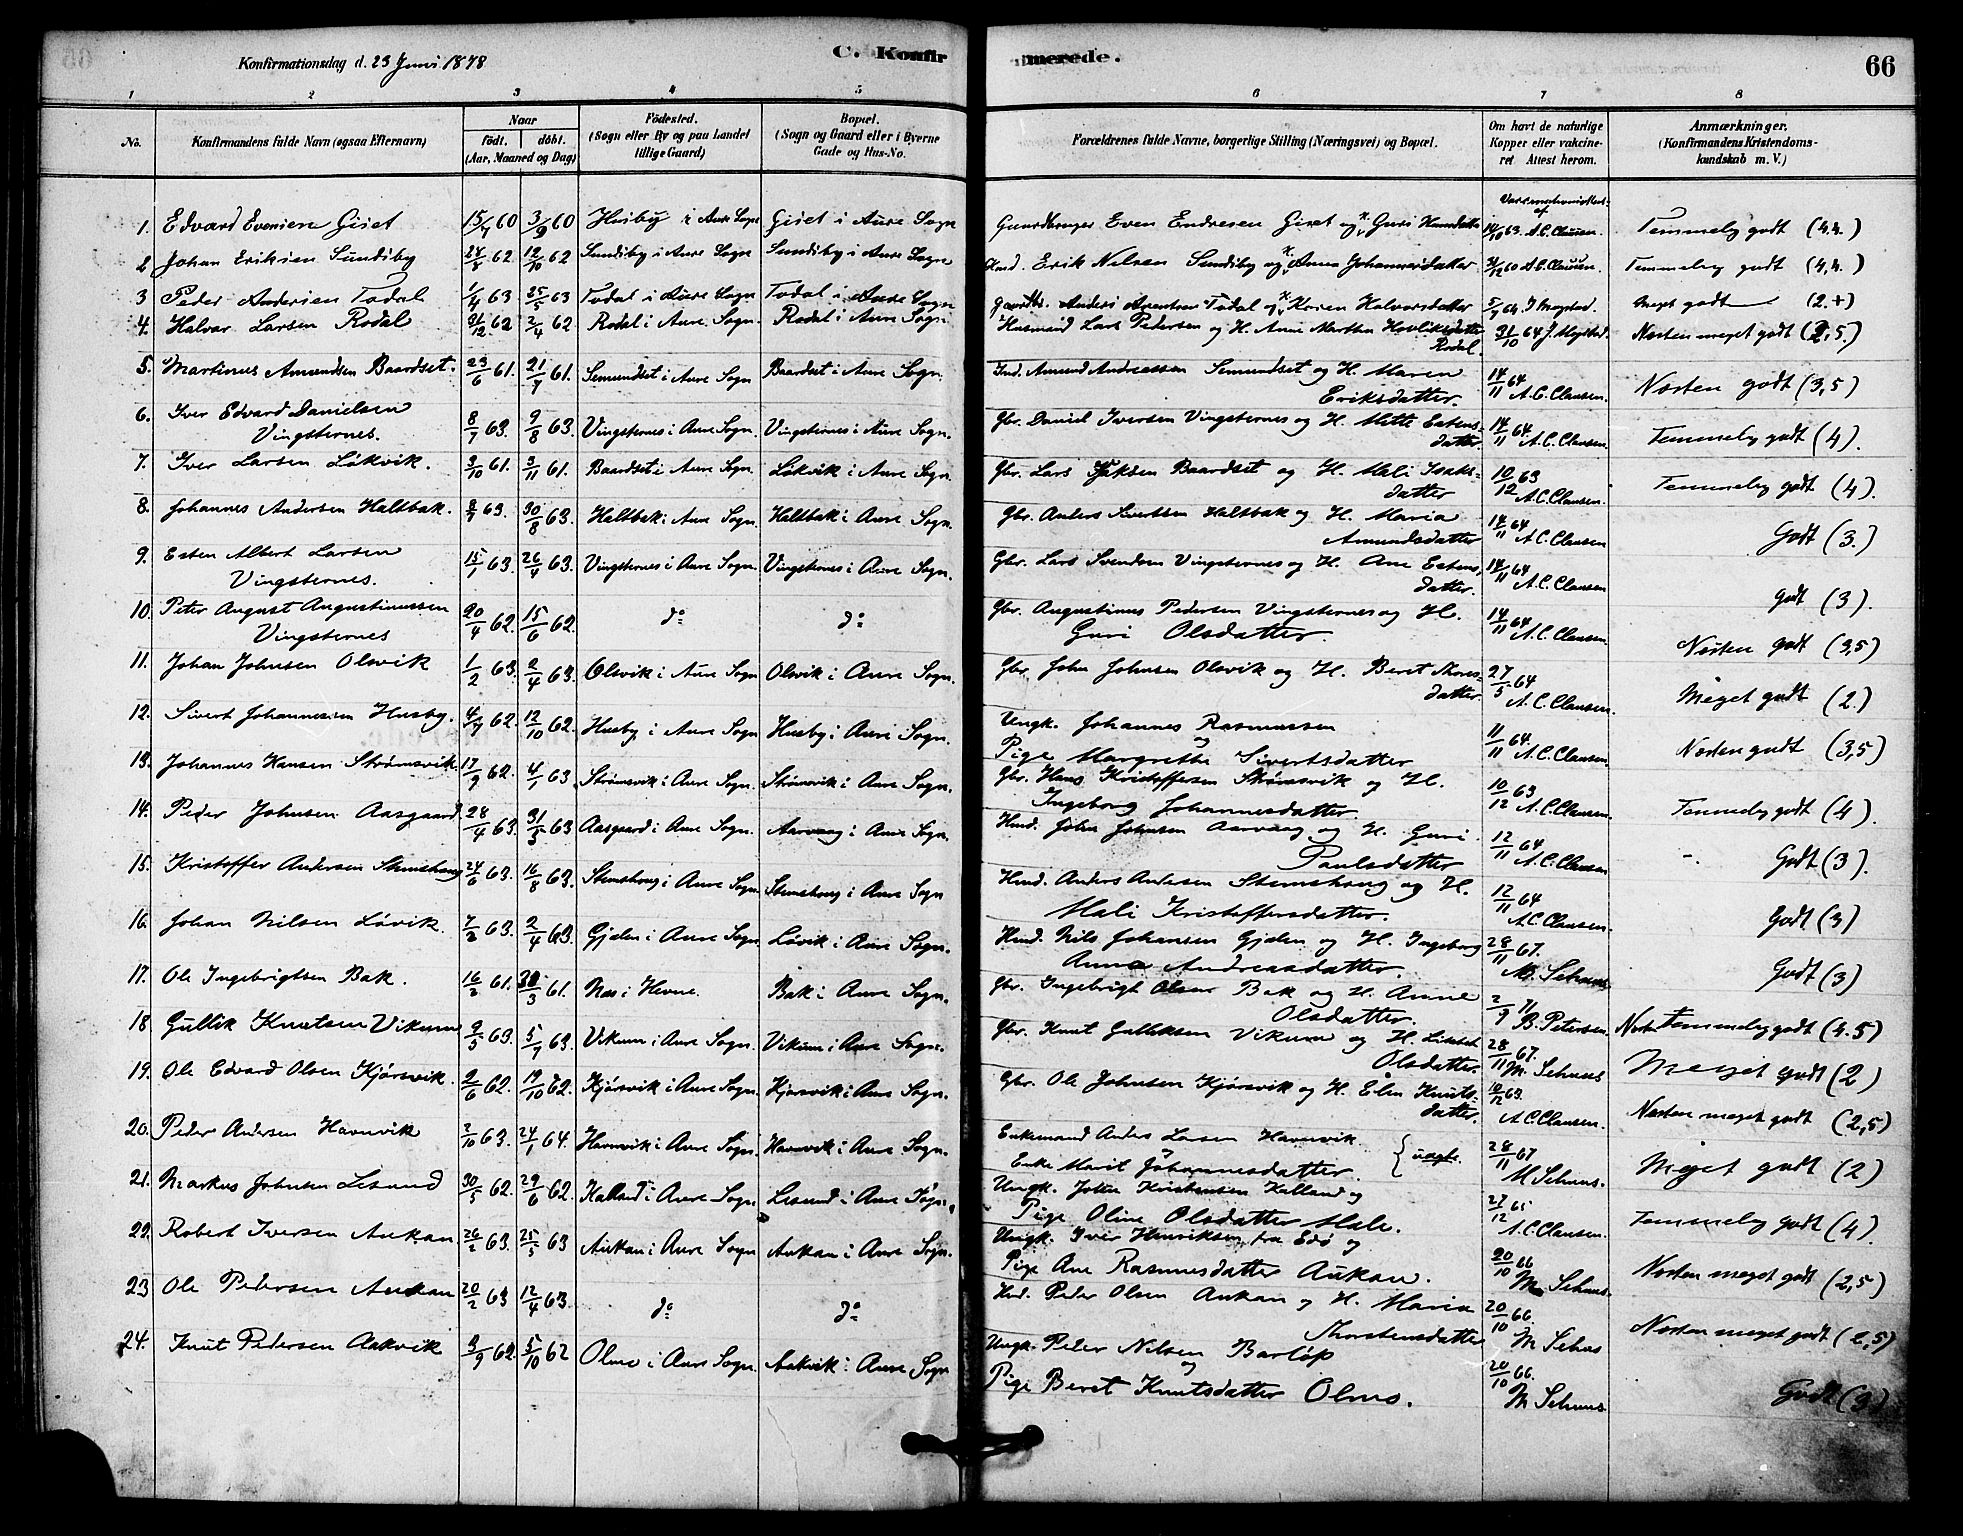 Konfirmationsdag d. 23 Juni 1878
C. Konfirmerede.
66
1 2 3 4 5 6 7 8
No.
Konfirmandens fulde Navn (ogsaa Efternavn)
Naar
født. døbt.
(Aar, Maaned og Dag)
Fødested.
(Sogn eller By og paa Landet
tillige Gaard)
Bopæl.
(Sogn og Gaard eller i Byerne
Gade og Hus-No.
Forældrenes fulde Navne, borgerlige Stilling (Næringsvei) og Bopæl.
Om havt de naturlige
Kopper eller vakcine-
ret Attest herom.
Anmærkninger.
(Konfirmandens Kristendoms-
kundskab m. V.)
1. Edvard Evensen Giset 15/7 60 3/9 60 Husby i Aure Sogn Giset i Aure Sogn Even Endresen Giset og Guri 14/10 63 A.C. Clausen. Temmelig godt (4.4.)
2 Johan Eriksen Sundiby 62 12/10 62 Sundiby i Aure Sogn Sundiby i Aure Sogn Erik Nilsen Sundiby og Anna Johannesdatter A.C. Clausen. Temmelig godt (4,4.)
3 Peder Andersen Todal 1/4 63 25/5 63 Todal i Aure Sogn Todal i Aure Sogn Todal og Karen Halvorsdatter 5/9 64 Meget godt (2+)
4. Halvor Larsen Rodal 31/12 62 2/4 62 Rodal i Aure Sogn. Rodal i Aure Sogn Husmand Lars Pedersen og H. Ane Marthe
Rodal. 31/10 64 Næsten meget godt (2,5.)
5. Martinus Amundsen Baardset. 23/6 61. 21/7 61. Semundset i Aure Sogn Baardset i Aure Sogn. Ind. Amund Andreassen Semundset og H. Maren
Eriksdatter. 14/11 64 A.C. Clausen. Næsten godt (3,5)
6. Iver Edvard Danielsen
Vingsternes. 8/7 63. 9/8 63. Vingsternes i Aure Sogn. Vingsternes i Aure Sogn. Gbr. Daniel Iversen Vingsternes og H. Mette Estens-
datter. 14/11 64 A.C. Clausen. Temmelig godt (4).
7. Iver Larsen Løkvik. 3/10 61. 3/11 61. Baardset i Aure Sogn. Løkvik i Aure Sogn. Gbr. Lars Baardset og H. Mali Isaks-
datter 10/12 63 A.C. Clausen. Temmelig godt (4).
8. Johannes Andersen Haltbak. 8/7 63. 30/8 63. Haltbak i Aure Sogn. Haltbak i Aure Sogn. Gbr. Anders Sivertsen Haltbak og H. Maria
Amundsdatter 14/11 64 A.C. Clausen Godt (3.)
9. Esten Albert Larsen
Vingsternes. 15/1 63. 26/4 63. Vingsternes i Aure Sogn. Vingsternes i Aure Sogn. Gbr. Lars Svendsen Vingsternes og H. Ane Estens-
datter. 14/11 64 A.C. Clausen Godt (3).
10. Peter August Augustinussen
Vingsternes 20/4 62. 15/6 62. do do Gbr. Augustinus Pedersen Vingsternes og H.
Guri Olsdatter 14/11 64 A.C. Clausen. Næsten godt (3,5)
11. Johan Johnsen Olsvik 1/2 63. 2/4 63. Olsvik i Aure Sogn Olsvik i Aure Sogn. Gbr. John Johnsen Olsvik og H. Beret Thores-
datter. 27/5 64 A.C. Clausen. Meget godt (2.)
12. Sivert Johannessen Husby. 4/9 62. 12/10 62. Husby i Aure Sogn Husby i Aure Sogn. Ungk. Johannes Rasmussen
og
Pige Margrethe Sivertsdatter 11/11 64 A.C. Clausen. Næsten godt (3,5)
13. Johannes Hansen Strømsvik 17/9 62. 4/1 63. Strømsvik i Aure Sogn. Strømsvik i Aure Sogn. Gbr. Hans Kristoffersen Strømsvik og H.
Ingeborg Johannesdatter. 10/12 63 A.C. Clausen. Temmelig godt (4).
14. Peder Johnsen Aasgaard 28/4 63. 31/5 63 Aasgaard i Aure Sogn. Aarvaag i Aure Sogn. Husd. John Johnsen Aarvaag og H. Guri
Paulsdatter 12/11 64 A.C. Clausen Godt (3).
15. Kristoffer Andersen Stemshaug 24/6 63. 16/8 63. Stemshaug i Aure Sogn. Stemshaug i Aure Sogn Husd. Anders Andersen Stemshaug og H.
Mali Kristoffersdatter. 12/11 64 A.C. Clausen. Godt (3)
16. Johan Nilsen Løvik. 63. 2/4 63. Gjølen i Aure Sogn Løvik i Aure Sogn. Husd. Nils Johansen Gjølen og H. Ingeborg
Anna Andreasdatter. 28/11 67. Godt (3)
17. Ole Ingebrigtsen Bak. 61. 61. Nes i Hevne. Bak i Aure Sogn. Gbr. Ingebrigt Olsen Bak og H. Anne
Olsdatter. B. Petersen. Næsten Temmelig godt (4.5)
18. Gullik Knutsen Vikum 63. 5/7 63. Vikum i Aure Sogn. Vikum i Aure Sogn. Gbr. Knut Gulliksen Vikum og H. Lisbet
Olsdatter. 28/11 67. Meget godt (2)
19. Ole Edvard Olsen Kjørsvik. 9/6 62. 19/10 62. Kjørsvik i Aure Sogn. Kjørsvik i Aure Sogn. Gbr. Ole Johnsen Kjørsvik og H. Elen Knuts-
datter. 10/12 63. A.C. Clausen. Næsten meget godt (2,5)
20. Peder Andersen Havnvik 2/10 63. 24/1 64. Havnvik i Aure Sogn. Havnvik i Aure Sogn. Enkemand Anders Larsen Havnvik
Enke Marit Johannesdatter. { uægte. 28/11 67 Meget godt (2)
21. Markus Johnsen Lesund 30/5 62. 29/6 62. Kalland i Aure Sogn. Lesund i Aure Sogn. Ungk. John Kristensen Kalland og
Pige Oline Olsdatter Mele. 27/12 65 A.C. Clausen. Temmelig godt (4)
22. Robert Iversen Aukan 26/2 63. 25/5 63 Aukan i Aure Sogn Aukan i Aure Sogn. Ungk. Iver Henriksen fra Edø og
Pige Ane Rasmusdatter Aukan. 20/10 66 Næsten meget godt (2,5)
23 Ole Pedersen Aukan 20/2 63 12/4 63. do do Husd. Peder Olsen Aukan og H. Maria
Thorstensdatter 20/10 66. Næsten meget godt (2,5)
24. Knut Pedersen Aakvik 9/9 62. 5/10 62 Olmo i Aure Sogn. Aakvik i Aure Sogn Ungk. Peter Nilsen Barløp
og
Pige Beret Knutsdatter Olmo. 20/10 66. Godt (3)